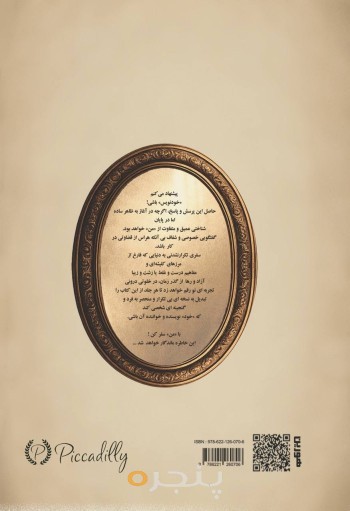 پیشنهاد می‌کنم
«خودنویس» باش!
حاصل این پرسش و پاسخ، اگرچه در آغاز به ظاهر ساده
اما در پایان
شناختی عمیق و متفاوت از «من» خواهد بود.
گفتگویی خصوصی و شفاف بی آنکه هراس از قضاوتی در
کار باشد.
سفری تکرارنشدنی به دنیایی که فارغ از
مرزهای کلیشه‌ای و
مفاهیم درست و غلط یا زشت و زیبا
آزاد و رها از گذر زمان، در خلوتی درونی
تجربه ای نو رقم خواهد زد تا هر جلد از این کتاب را
تبدیل به نسخه ای بی تکرار و منحصر به فرد و
گنجینه ای شخصی کند
که «خود» نویسنده و خواننده آن باشی.
با «من» سفر کن!
این خاطره ماندگار خواهد شد ...
ISBN: 978-622-126-070-6
Piccadilly
پنجره